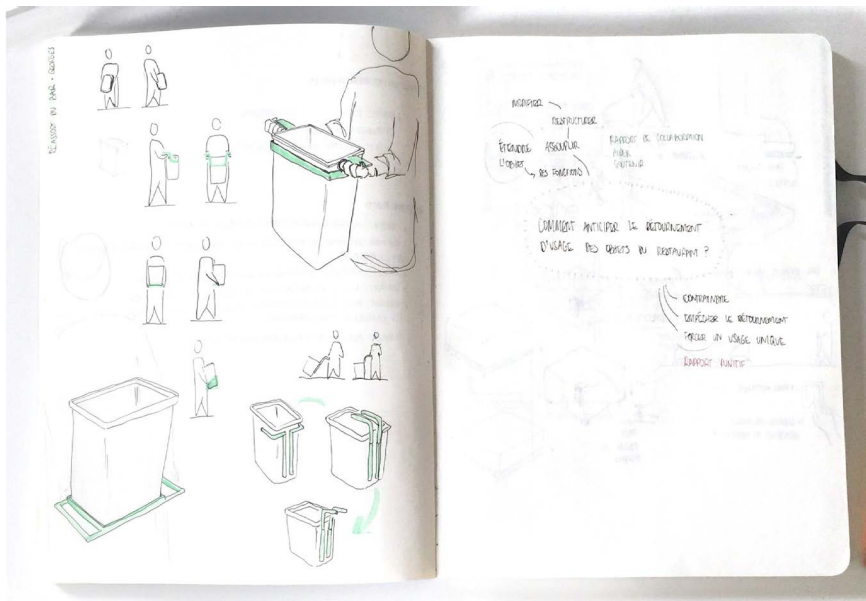 DESTRUCTURER
ÉTENDRE
L'OBJET
ASSOUPLIR
DES FONCTIONS
RAPPORT DE COLLABORATION
AIDER
SOUTENIR
COMMENT ANTICIPER LE DÉTOURNEMENT
D'USAGE DES OBJETS DU RESTAURANT ?
CONTRAINDRE
EMPÊCHER LE DÉTOURNEMENT
FORCER UN USAGE UNIQUE
RAPPORT PUNITIF